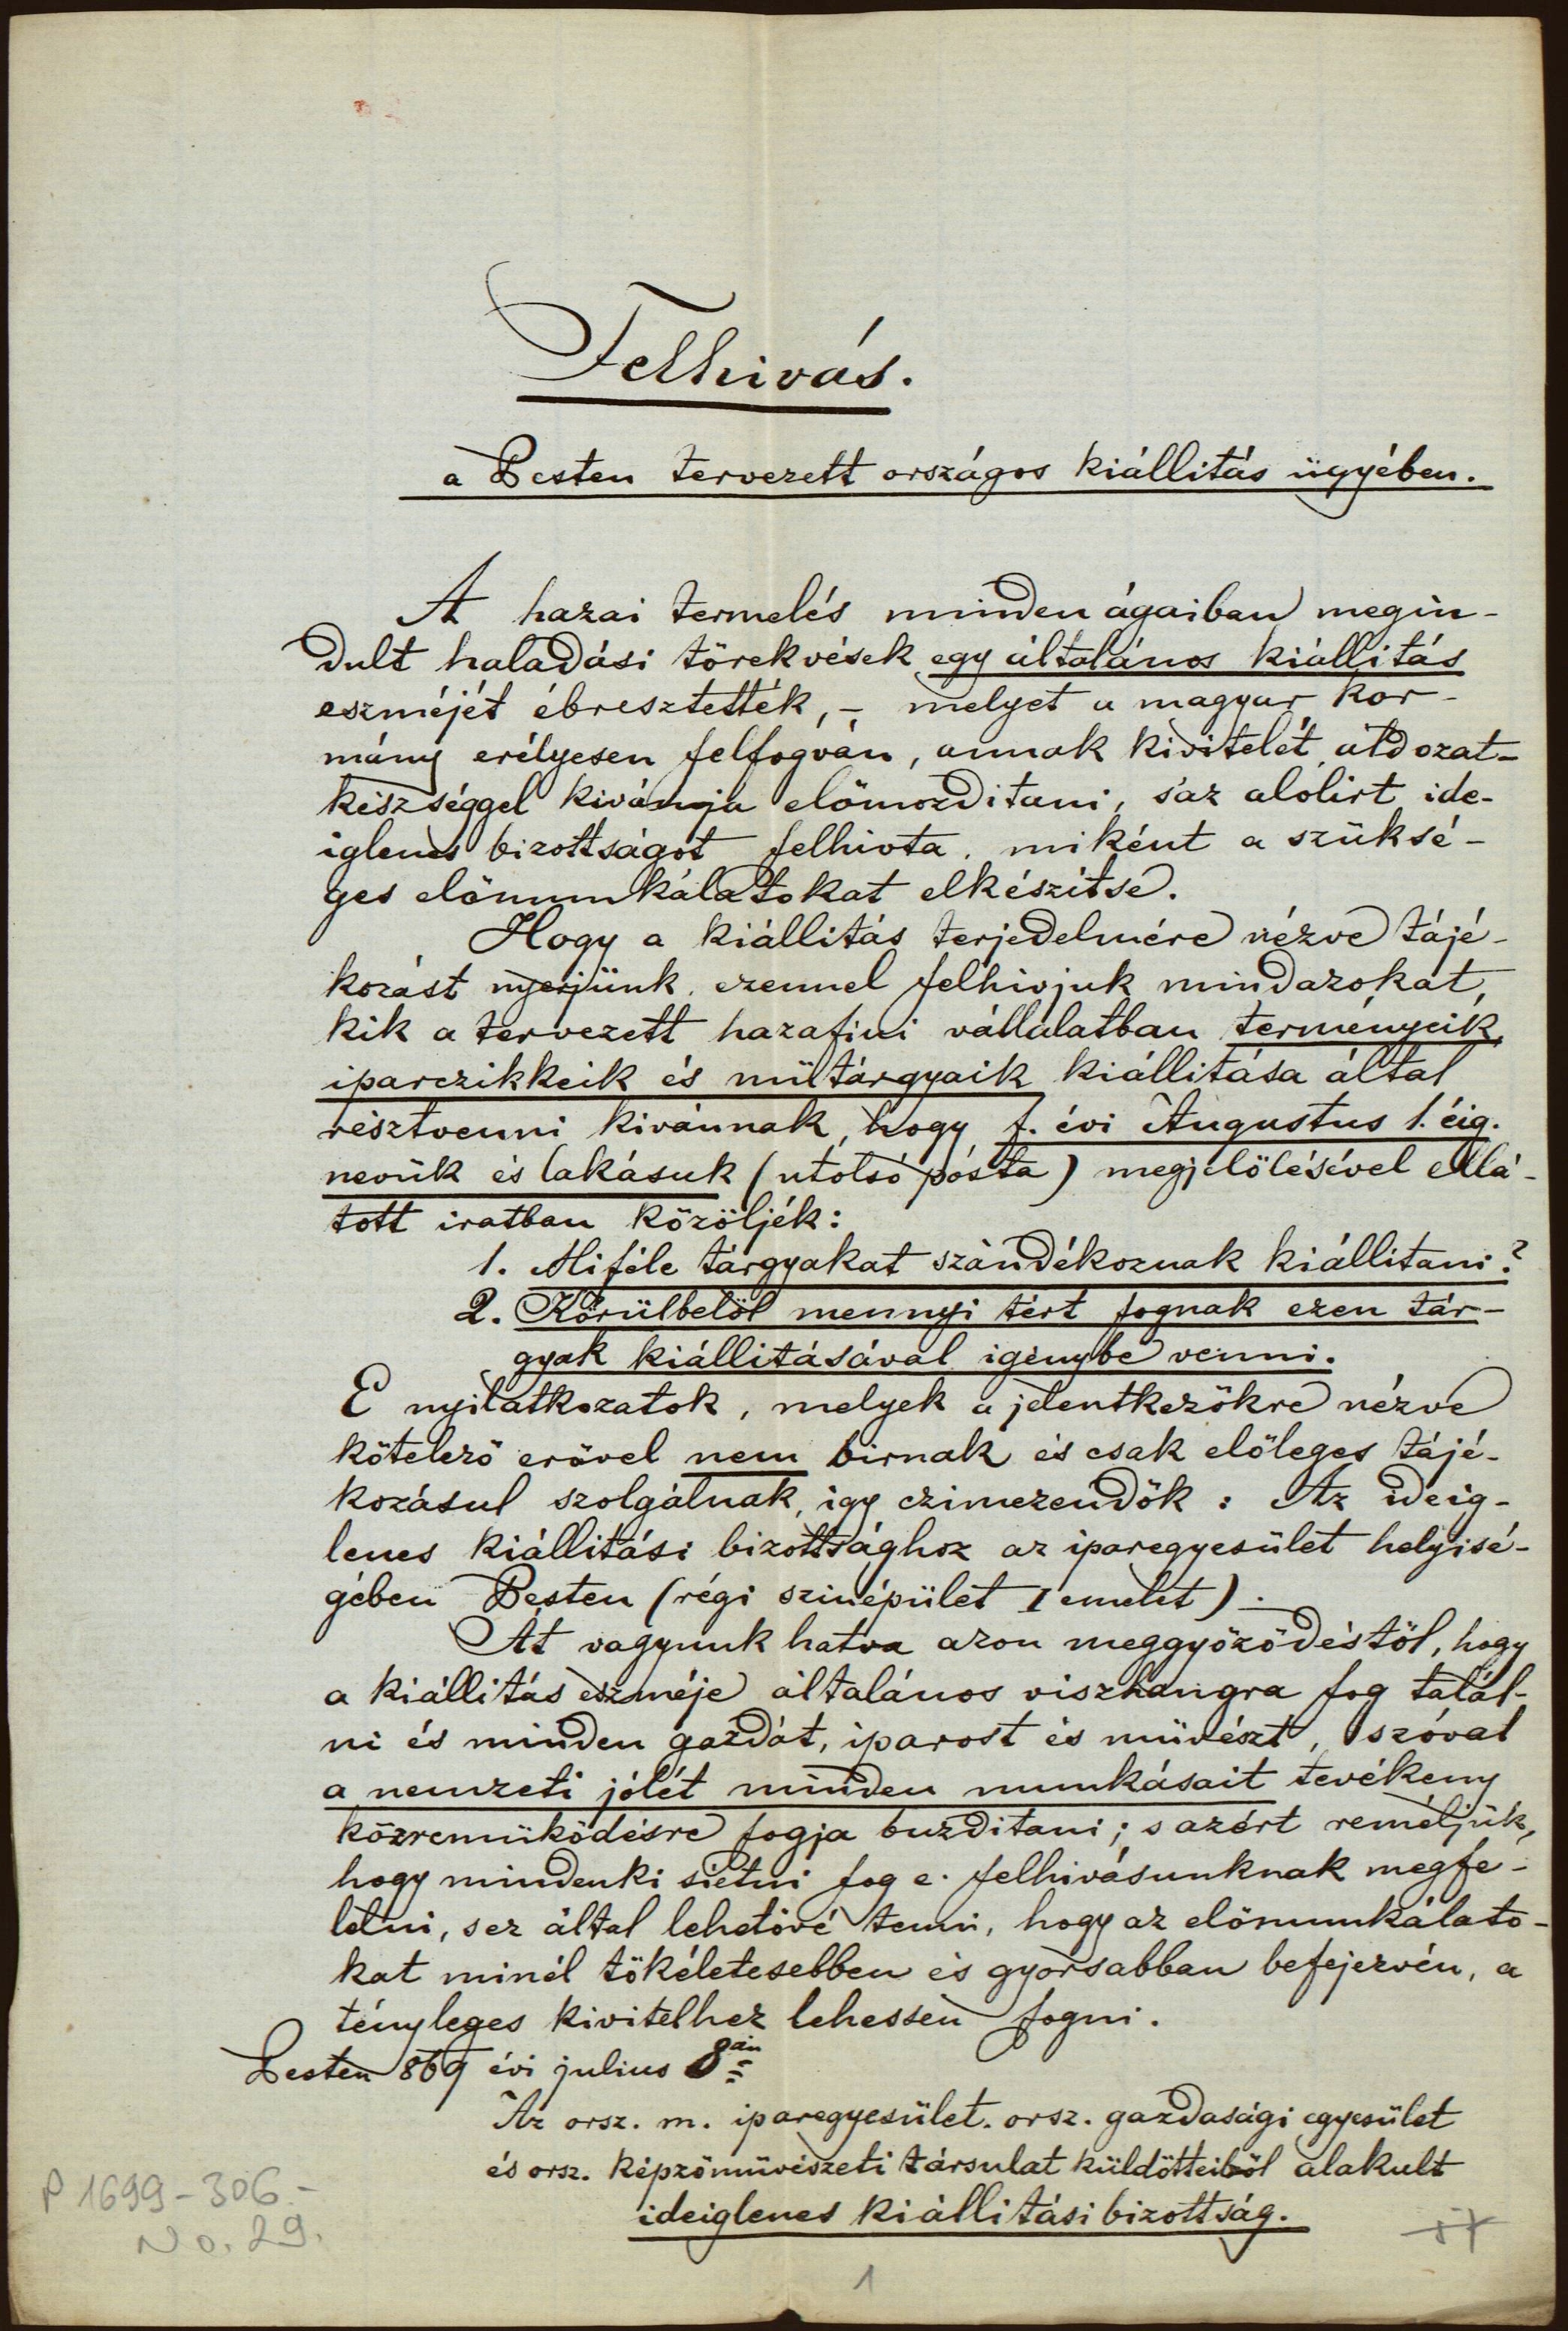 Felhivás.
a Pesten tervezett országos kiállitás ügyében.
A hazai termelés minden ágaiban megin-
dult haladási törekvések egy általános kiállitás
eszméjét ébresztették, – melyet a magyar kor-
mány erélyesen felfogván, annak kivitelét áldozat-
készséggel kivánja előmozditani, s az alólirt ide-
iglenes bizottságot felhivta, miként a szüksé-
ges előmunkálatokat elkészitse.
Hogy a kiállitás terjedelmére nézve tájé-
kozást nyerjünk, ezennel felhivjuk mindazokat,
kik a tervezett hazafini vállalatban terményeik,
iparczikkeik és műtárgyaik kiállitása által
résztvenni kivánnak, hogy f. évi Augustus 1. éig.
nevük és lakásuk (utolsó pósta) megjelölésével ellá-
tott iratban közöljék:
1. Miféle tárgyakat szándékoznak kiállitani?
2. Körülbelöl mennyi tért fognak ezen tár-
gyak kiállitásával igénybe venni.
E nyilatkozatok, melyek a jelentkezőkre nézve
kötelező erővel nem birnak és csak előleges tájé-
kozásul szolgálnak, igy czimezendők: Az ideig-
lenes kiállitási bizottsághoz az iparegyesület helyisé-
gében Pesten (régi szinépület I emelet).
Át vagyunk hatva azon meggyőződéstöl, hogy
a kiállitás eszméje általános viszhangra fog talál-
ni és minden gazdát, iparost és művészt, szóval
a nemzeti jólét minden munkásait tevékeny
közremüködésre fogja buzditani; s azért reméljük,
hogy mindenki sietni fog e. felhivásunknak megfe-
lelni, s ez által lehetővé tenni, hogy az előmunkálato-
kat minél tökéletesebben és gyorsabban befejezvén, a
tényleges kivitelhez lehessen fogni.
Pesten 869 évi julius 8án
Az orsz. m. iparegyesület. orsz. gazdasági egyesület
és orsz. képzőművészeti társulat küldötteiből alakult
ideiglenes kiállitási bizottság.
P 1699-306.-
No. 29.
1